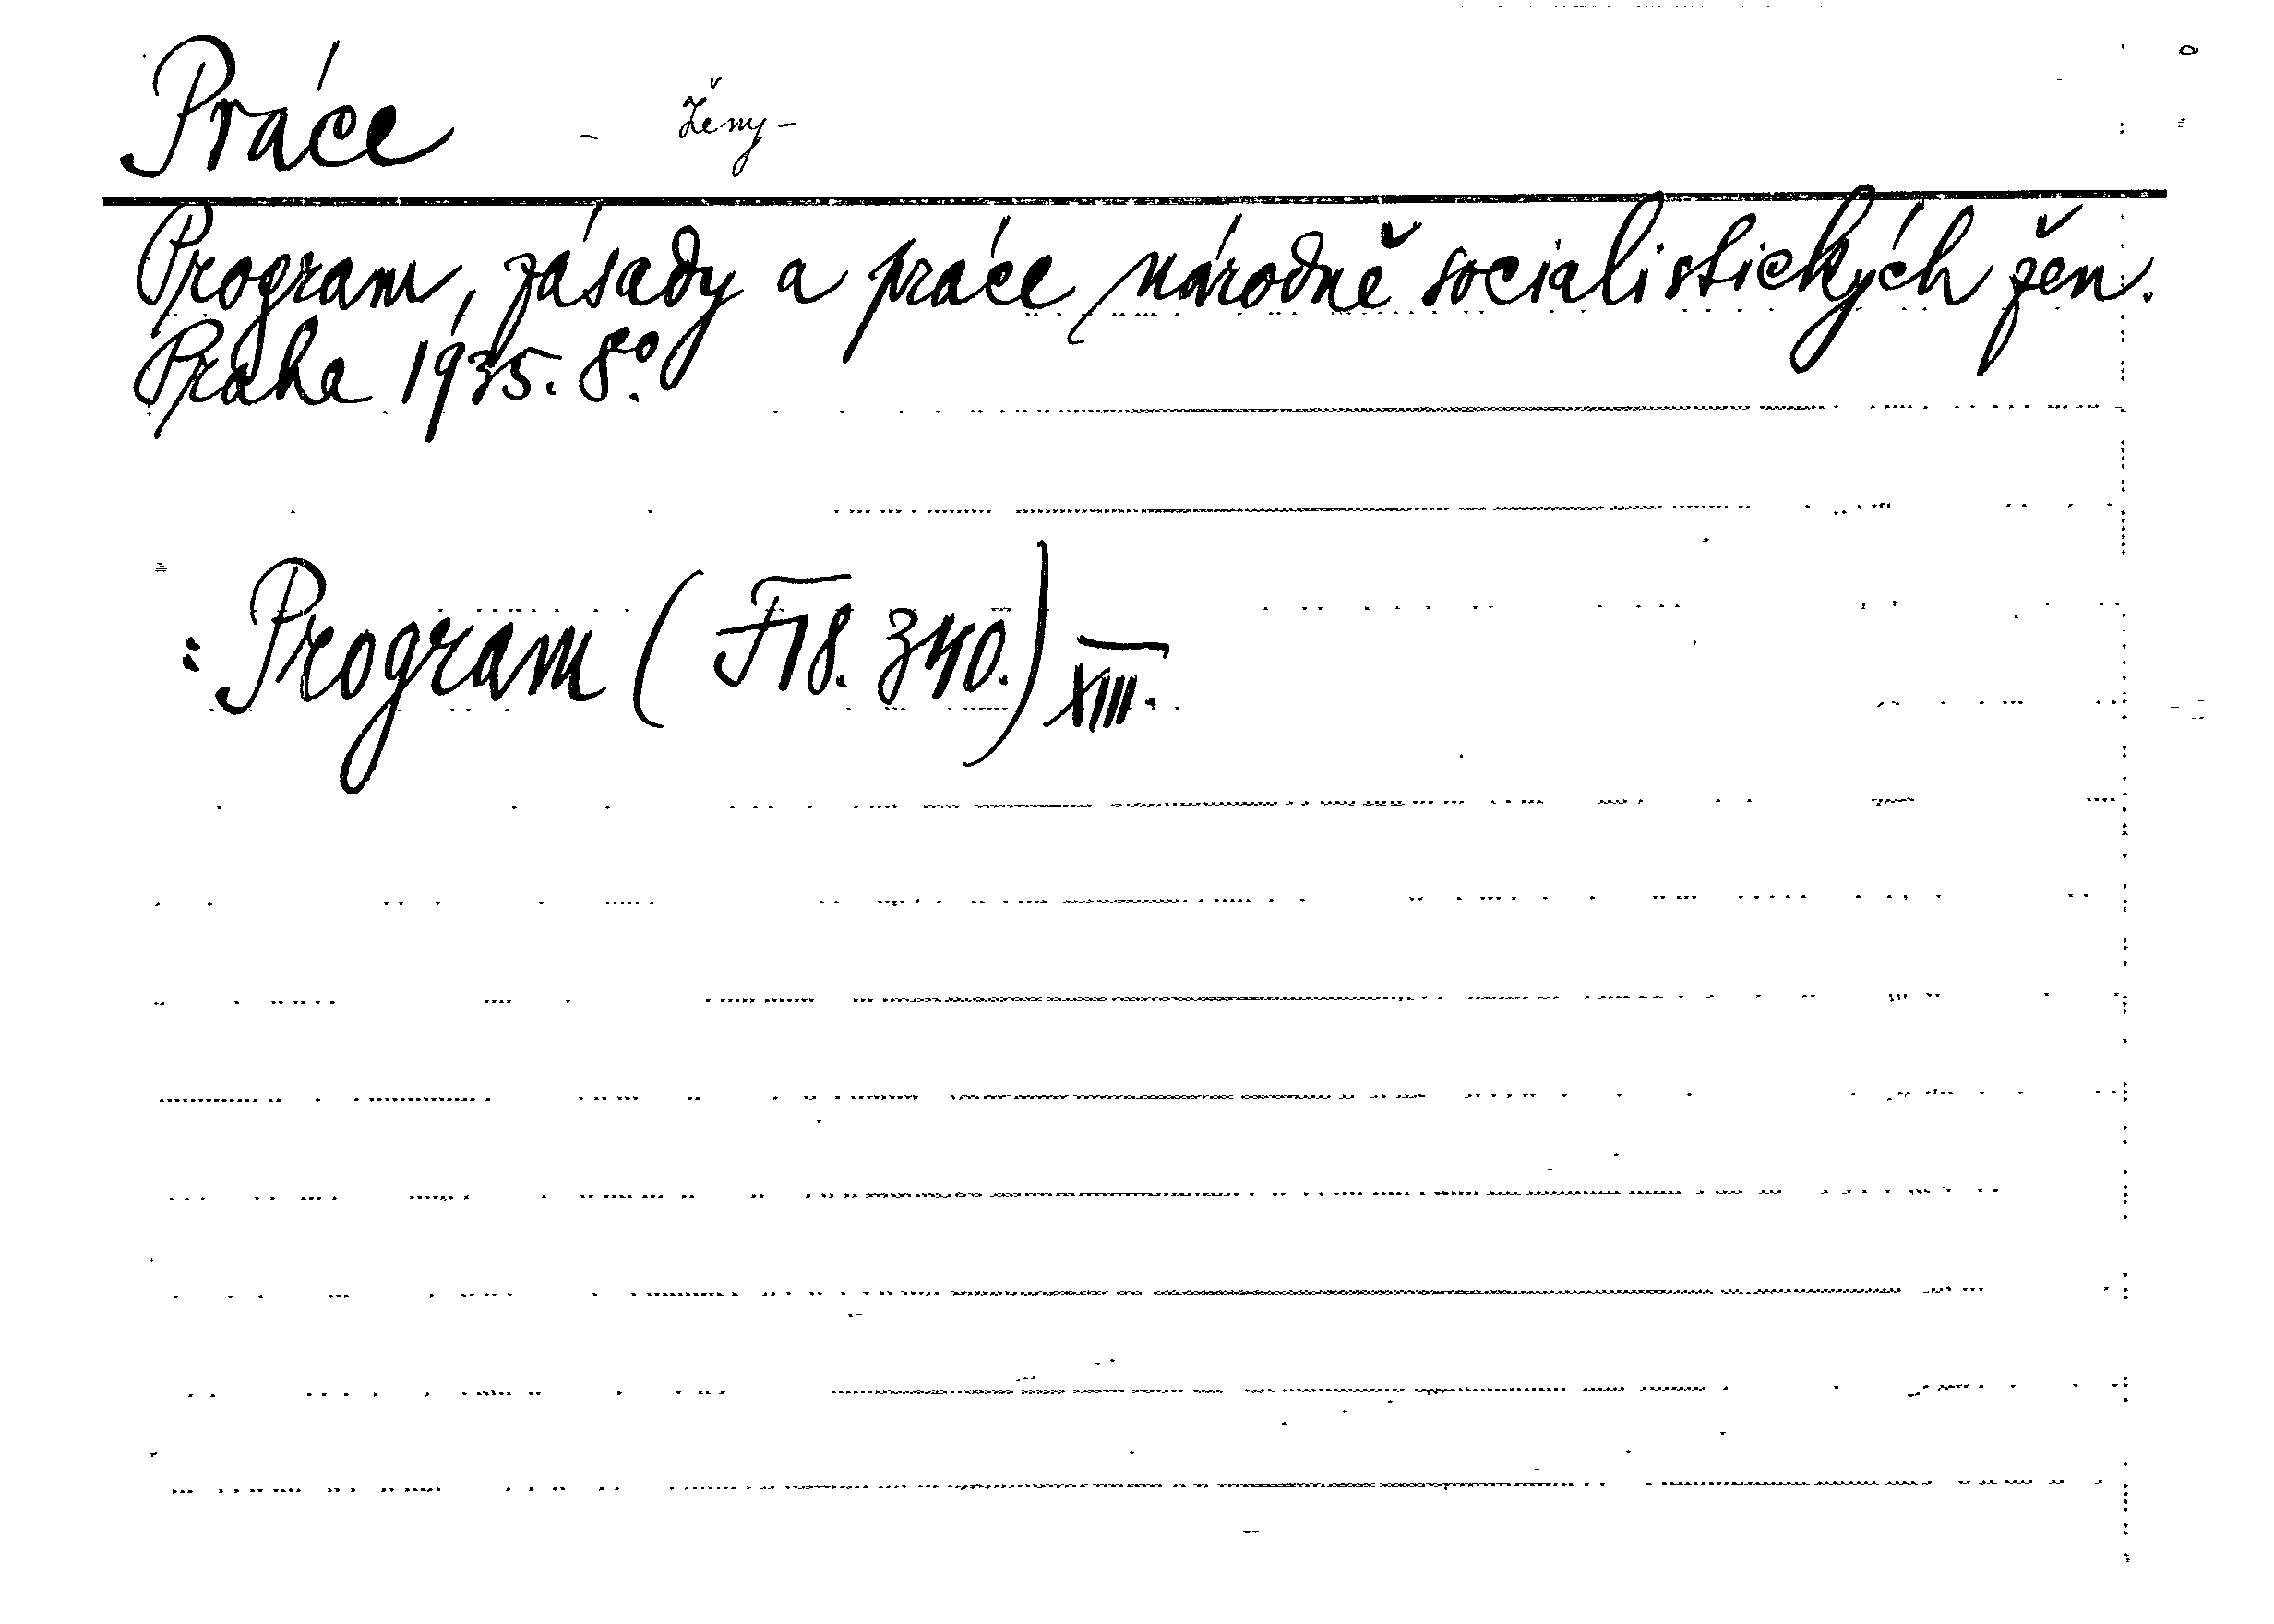 Práce - Ženy -
Program, zásady a práce národně socialistických žen.
Praha 1935. 8°.
: Program (F18. 340.) XIII.